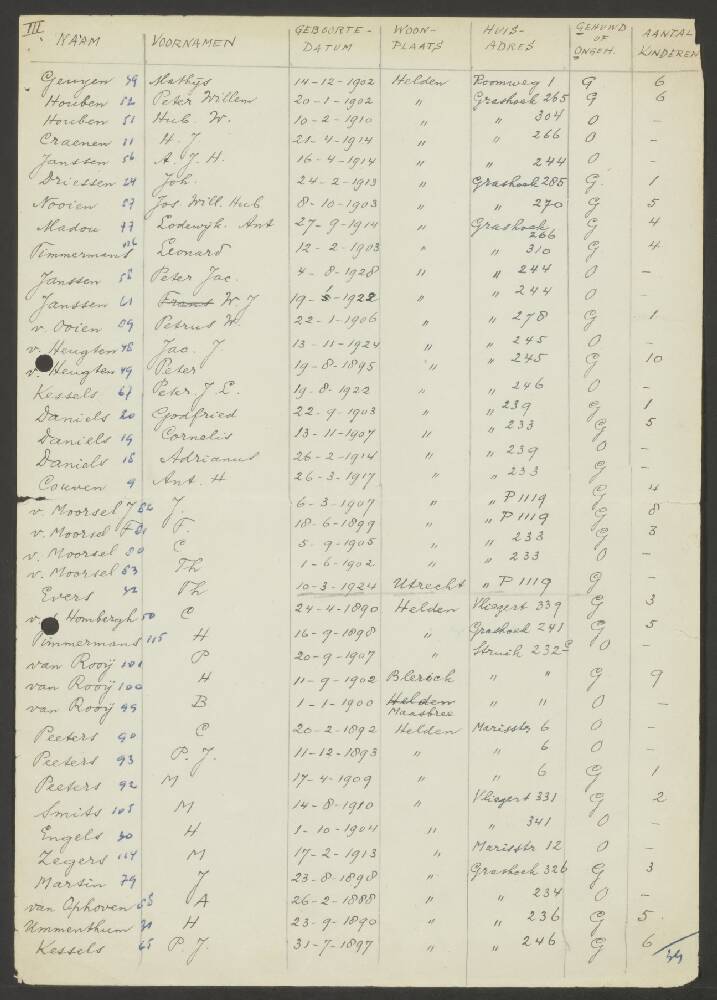 III
NAAM VOORNAMEN GEBOORTE-DATUM WOON-PLAATS HUIS-ADRES GEHUWD OF ONGEH. AANTAL KINDEREN
Geuyen 39 Mathijs 14-12-1902 Helden Roomweg 1 G 6
Houben 52 Peter Willem 20-1-1902 " Grashoek 265 G 6
Houben 51 Hub. W. 10-2-1910 " " 304 O -
Craenen 11 H. J 21-4-1914 " " 266 O -
Janssen 56 A. J. H. 16-4-1914 " " 244 O -
Driessen 24 Joh. 24-2-1913 " Grashoek 285 G. 1
Nooien 87 Jos. Will. Hub 8-10-1903 " " 270 G 5
Madou 77 Lodewijk. Ant 27-9-1914 " Grashoek 266 G 4
Timmermans 116 Leonard 12-2-1903 " " 310 G 4
Janssen 58 Peter Jac. 4-8-1928 " " 244 O -
Janssen 61 Frans W. J 19-5-1922 " " 244 O -
v. Ooien 89 Petrus W. 22-1-1906 " " 278 G 1
v. Heugten 48 Jac. J 13-11-1924 " " 245 O -
v. Heugten 49 Peter 19-8-1895 " " 245 G 10
Kessels 67 Peter J. L. 19-8-1922 " " 246 O -
Daniels 20 Godfried 22-9-1903 " " 239 G 1
Daniels 19 Cornelis 13-11-1907 " " 233 G 5
Daniels 18 Adrianus 26-2-1914 " " 239 O -
Couven 9 Ant. H 26-3-1917 " " 233 G -
v. Moorsel J 82 J. 6-3-1907 " " P 1119 G 4
v. Moorsel F 81 F. 18-6-1899 " P 1119 G 8
v. Moorsel 80 C 5-9-1905 " " 233 G 3
v. Moorsel 83 Th 1-6-1902 " " 233 O -
Evers 32 Th 10-3-1924 Utrecht " P 1119 G -
v. d Hombergh 50 C 24-4-1890 Helden Vliegert 339 G 3
Timmermans 115 H 16-9-1898 " Grashoek 241 G 5
van Rooij 101 P 20-9-1907 " Struik 232 O -
van Rooij 100 H 11-9-1902 Blerick " " G 9
van Rooij 99 B 1-1-1900 Helden Maasbree " " O -
Peeters 90 C 20-2-1892 Helden Marisstr 6 O -
Peeters 93 P. J. 11-12-1893 " " 6 O -
Peeters 92 M 17-4-1909 " " 6 G 1
Smits 105 M 14-8-1910 " Vliegert 331 G 2
Engels 30 H 1-10-1904 " " 341 O -
Zegers 114 M 17-2-1913 " Marisstr 12 O -
Martin 79 J 23-8-1898 " Grashoek 326 G 3
van Ophoven 88 A 26-2-1888 " " 234 O -
Ummenthum H 23-9-1890 " " 236 G 5
Kessels 65 P. J. 31-7-1897 " " 246 G 6